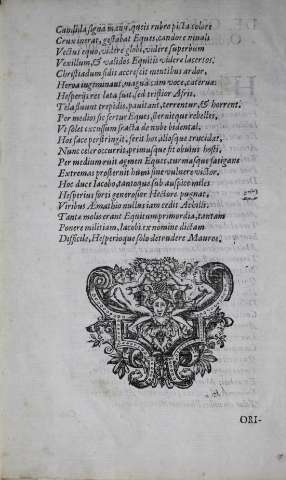 Candida signa manu, queis rubro picta colore
Crux inerat, gestabat Eques, candore niuali
Vectus equo, videre globi, videre superbum
Vexillum, & validos Equitis videre lacertos.
Christiadum sidis accrescit mentibus ardor,
Heroa ingeminant, magna iam voce, caterua:
Hesperijs res lata fuit, sed tristior Afris.
Tela fluunt trepidis, pauitant, terrentur, & horrent.
Per medios sic fertur Eques, sternitque rebelles,
Vt solet excussum fracta de nube bidental.
Hos face perstringit, ferit hos, aliosque trucidat,
Nunc celer occurrit, primusque fit obuius hosti,
Per medium ruit agmen Eques, turmasque fatigans
Extremas prosternit humi sine vulnere victor.
Hoc duce Iacobo, tantoque sub auspice miles
Hesperius forti generosior Hectore pugnat,
Viribus Æmathio nullus iam cedit Achilli.
Tanta molis erant Equitum primordia, tantam
Ponere militiam, Iacobi ex nomine dictam
Difficile, Hesperioque solo detrudere Mauros.
ORI-